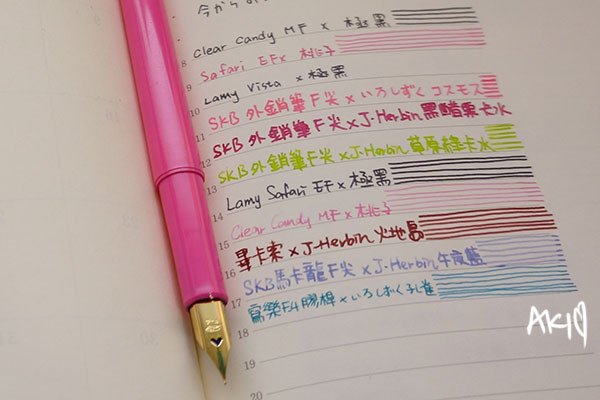 今から
8
Clear Candy MF × 極黑
Safari EF × 桃子
9
Lamy Vista × 極黑
10
SKB 外銷筆 F尖 × いろしずく コスモス
11
SKB 外銷筆 F尖 × J.Herbin 黑醋栗卡水
12
SKB 外銷筆 F尖 × J.Herbin 草原綠卡水
13
Lamy Safari EF × 極黑
14
Clear Candy MF × 桃子
15
畢卡索 × J-Herbin 火地島
16
SKB 馬卡龍 F尖 × J-Herbin 午夜藍
17
寫樂F4膠桿 × いろしずく 孔雀
18
19
20
AKI